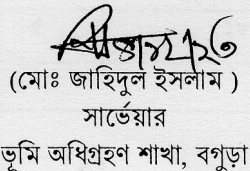 (মোঃ জাহিদুল ইসলাম )
সার্ভেয়ার
ভূমি অধিগ্রহণ শাখা, বগুড়া